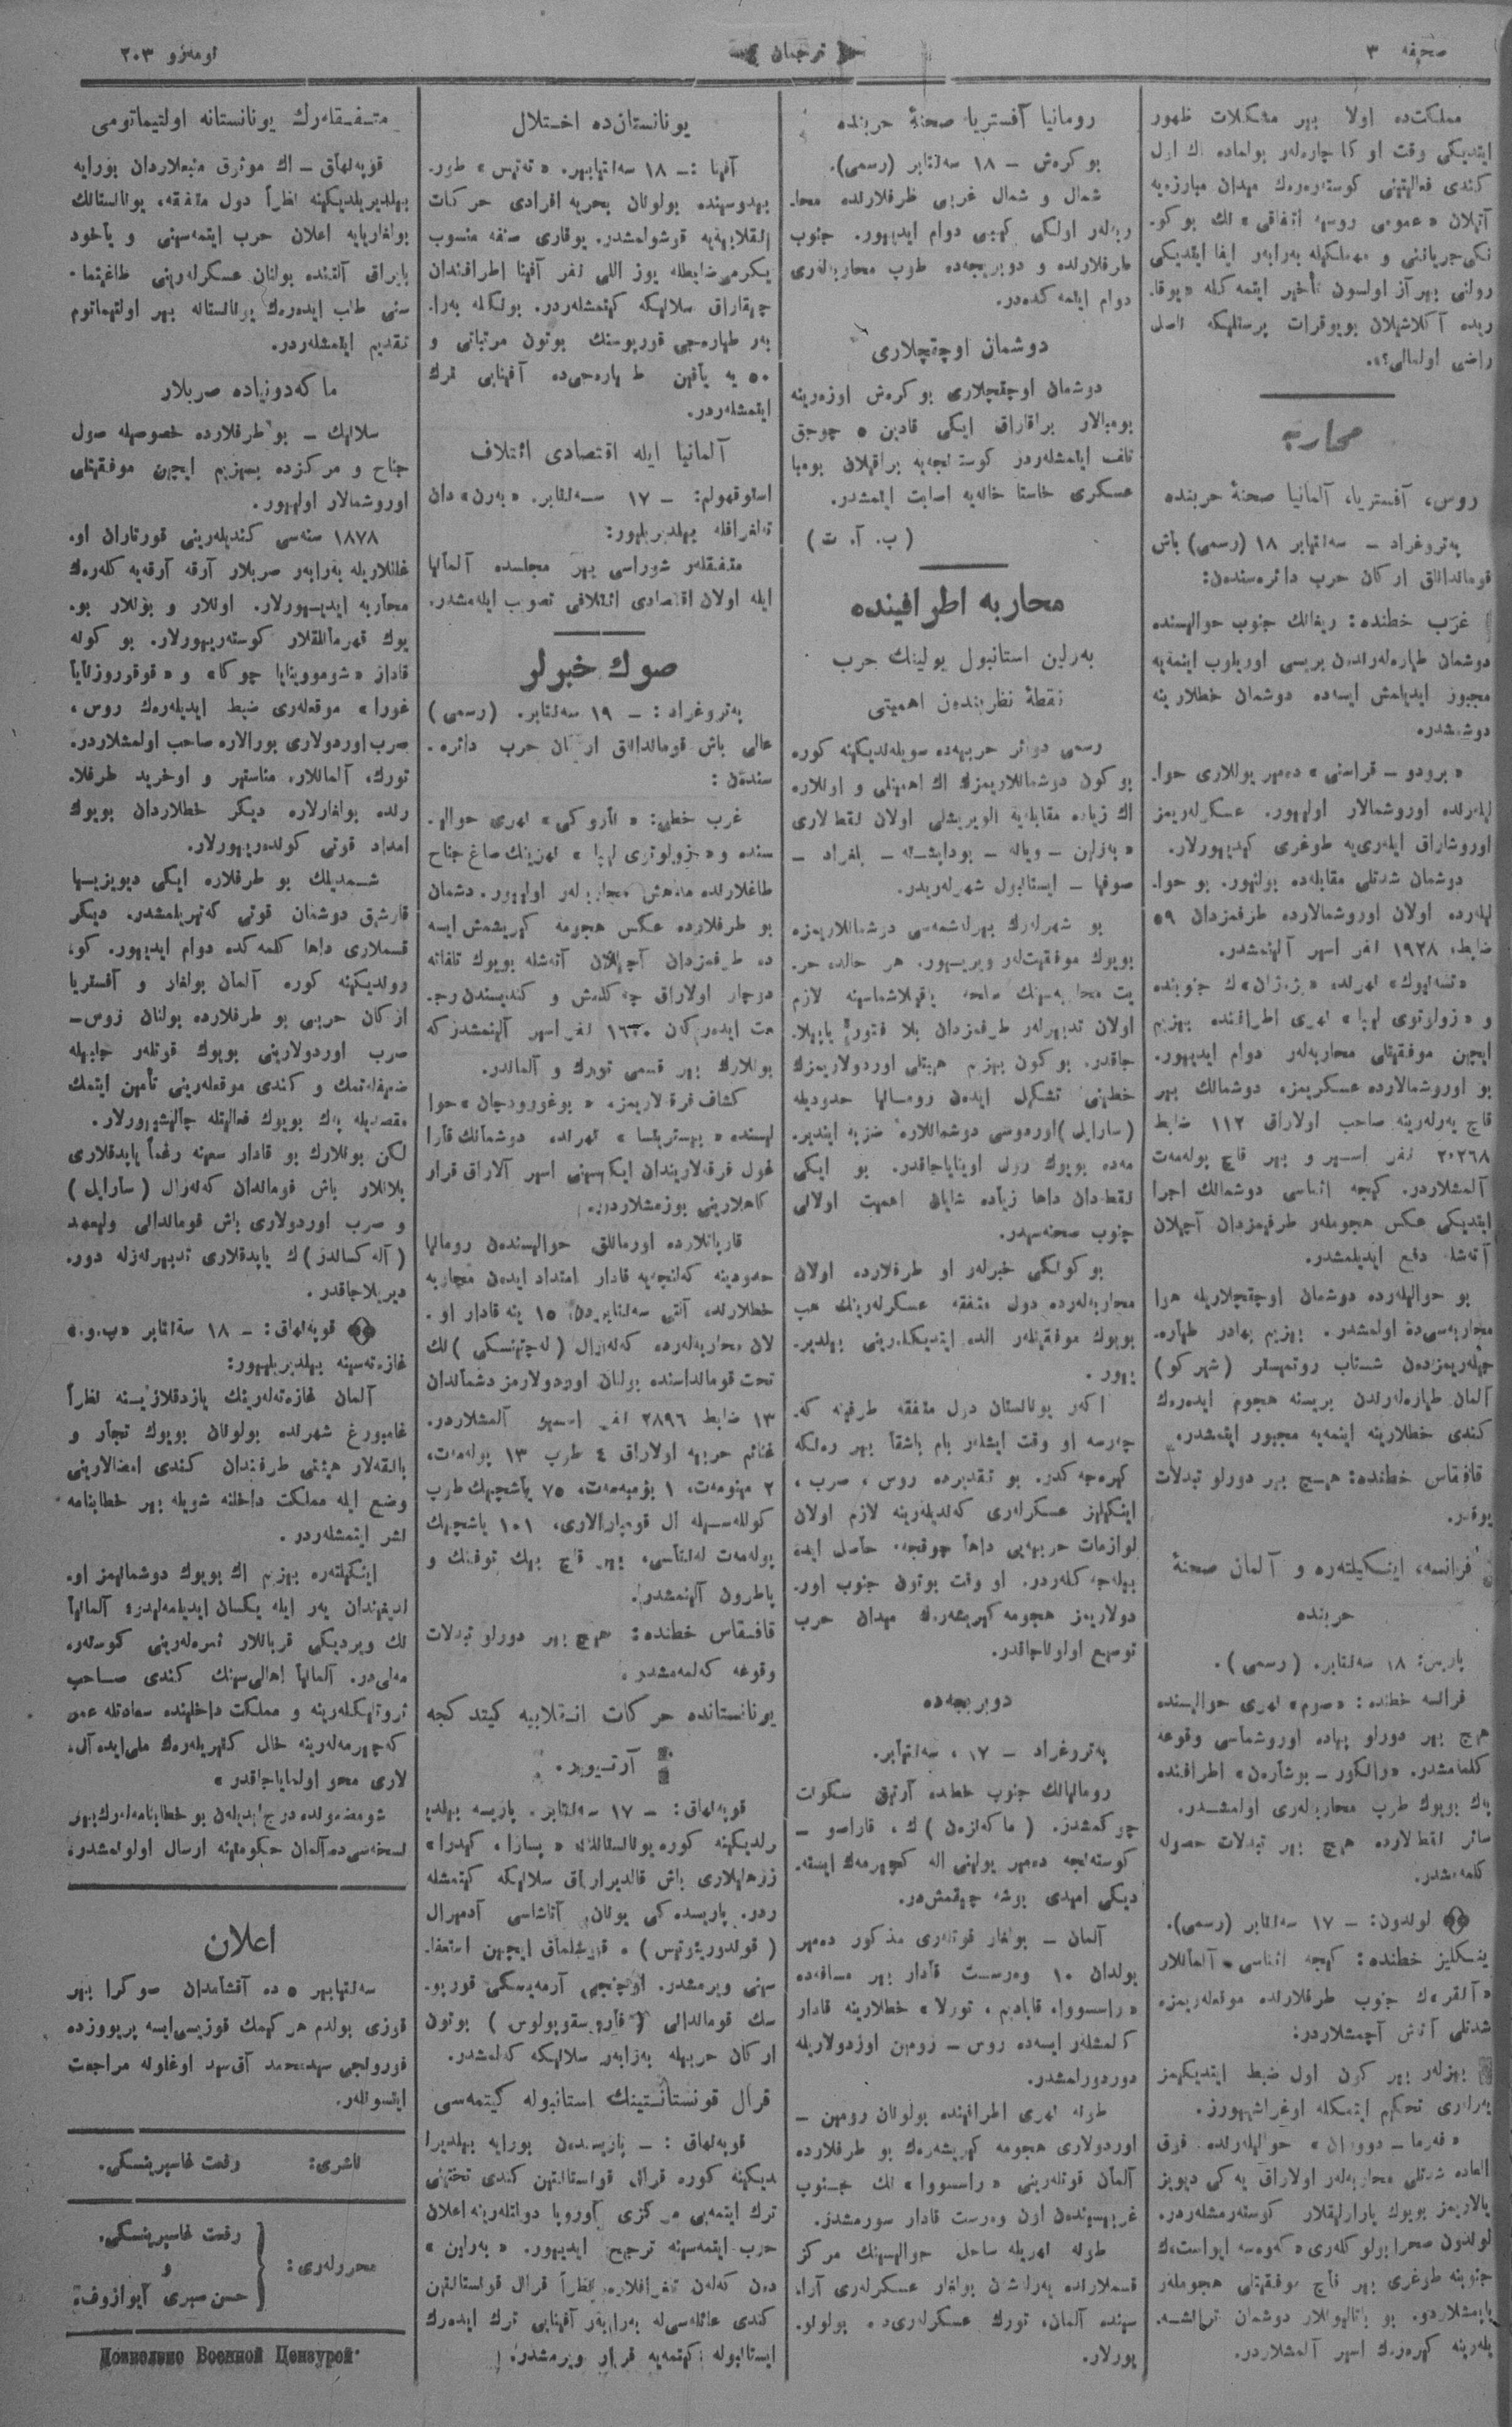 صحیفه ۳
ترجمان
نومه‌رو ۲۰۳
مملکت‌ده اولا بیر مشکلات ظهور
ایتدیکی وقت اوکا چاره‌لر بولماده اڭ اول
کندی فعالیتینی کوسته‌ره‌رك میدان مبارزه‌یه
آتیلان «عمومی روسیه اتفاقی» نڭ بو کو‌-
رولنی بیر آز اولسون تأخیر ایتمه‌کله «یوقا‌-
ریده آڭلاشیلان بویوقرات پرستلیکه ناصل
راضی اولمالی؟».
محاربه
روس، آفستریا، آلمانیا صحنهٔ حربنده
په‌تروغراد – سه‌نتیابر ۱۸ (رسمی) باش
قوماندانلق ارکان حرب دائره‌سندن:
غرب خطنده: ریغانڭ جنوب حوالیسنده
دوشمان طیاره‌لرندن بریسی اوریلوب اینمه‌یه
مجبور ایدیلمش ایسه‌ده دوشمان خطلارینه
دوشمشدر.
«برودو – قراسنی» ده‌میر یوللاری حوا‌-
لیلرنده اوروشمالار اولیور. عسکرلریمز
اوروشاراق ایلری‌یه طوغری کیدییورلار.
دوشمان شدتلی مقابله‌ده بولنیور. بو حوا‌-
لیلرده اولان اوروشمالارده طرفمزدان ۵۹
ضابط، ۱۹۲۸ نفر اسیر آلینمشدر.
و «زولوتوی لیپا» نهری اطرافنده بیزیم
ایچین موفقیتلی محاربه‌لر دوام ایدیور.
بو اوروشمالارده عسکریمز، دوشمانڭ بیر
قاچ یرلرینه صاحب اولاراق ۱۱۲ ضابط
۲۰۲۶۸ نفر اسیر و بیر قاچ پوله‌مت
آلمشلاردر. کیجه اثناسی دوشمانڭ اجرا
ایتدیکی عکس هجوملر طرفیمزدان آچیلان
آتشله دفع ایدیلمشدر.
بو حوالیلرده دوشمان اوچقیچلاریله هوا
محاربه‌سی‌ده اولمشدر. بیزیم بهادر طیاره‌-
چیلریمزدن شتاب روتمیستر (شیرکو)
آلمان طیاره‌لرندن بریسنه هجوم ایده‌رك
کندی خطلارینه اینمه‌یه مجبور ایتمشدر.
قافقاس خطنده: هیچ بیر دورلو تبدلات
یوقدر.
فرانسه، اینگیلتره و آلمان صحنهٔ
حربنده
پاریس: ۱۸ سه‌نتابر. (رسمی).
فرانسه خطنده: «صوم» نهری حوالیسنده
هیچ بیر دورلو پیاده اوروشماسی وقوعه
کلمامشدر. «رانکور – بوشاره‌ن» اطرافنده
پك بویوك طوپ محاربه‌لری اولمشدر.
سائر نقطه‌لارده هیچ بیر تبدلات حصوله
کلمه‌مشدر.
لوندون: – ۱۷ سه‌نتابر (رسمی).
ینگلیز خطنده: کیجه اثناسی آلمانلار
«آنقر»ڭ جنوب طرفلارنده موقعلریمزه
شدتلی آتش آچمشلاردر:
بیزلر بیر کون اول ضبط ایتدیکیمز
یرلری تحکیم ایتمکله اوغراشییورز.
العاده شدتلی محاربه‌لر اولاراق یه‌کی دیویز
یالاریمز بویوك یارارلیقلار کوسترمشلردر.
جنوبنه طوغری بیر قاچ موفقیتلی هجوملر
یاپمشلاردر. بو باتالیونلار دوشمان ترانشه‌-
یلرینه کیره‌رك اسیر آلمشلاردر.
رومانیا آفستریا صحنهٔ حربنده
بوکرش – ۱۸ سه‌نتابر (رسمی).
شمال و شمال غربی طرفلارنده محا‌-
ربه‌لر اولکی کیبی دوام ایدییور. جنوب
طرفلارنده و دوبریجه‌ده طوپ محاربه‌لری
دوام ایتمه‌کده‌در.
دوشمان اوچقیچلاری
دوشمان اوچقیچلاری بوکرش اوزه‌رینه
بومبالار براقاراق ایکی قادین ۵ چوجق
تلف ایتمشلردر کوستنجه‌یه براقیلان بومبا
عسکری خاستا خانه‌یه اصابت ایتمشدر.
(پ. آ. ت)
محاربه اطرافینده
برلین استانبول یولینڭ حرب
نقطهٔ نظرندن اهمیتی
رسمی دوائر حربیه‌ده سویلندیکینه کوره
بو کون دوشمانلاریمزڭ اڭ اهمیتلی و اونلاره
اڭ زیاده مقابله‌یه الویریشلی اولان نقطه‌لاری
«برلین – ویانه – بوداپشته – بلغراد –
صوفیا – ایستانبول شهرلریدر.
بو شهرلرڭ بیرلشمه‌سی دوشمانلاریمزه
بویوك موفقیتلر ویرییور. هر حالده حر‌-
اولان تدبیرلر طرفمزدان بلا فتور یاپیلا‌-
جاقدر. بو کون بیزیم هیئتلی اوردولاریمزڭ
خطینی تشکیل ایدن رومانیا حدودیله
(سارایل) اوردوسی دوشمانلاره ضربه ایندیر‌-
مه‌ده بویوك رول اوینایاجاقدر. بو ایکی
نقطه‌دان داها زیاده شایان اهمیت اولانی
جنوب صحنه‌سیدر.
بو کونکی خبرلر او طرفلارده اولان
محاربه‌لرده دول متفقه عسکرلرینڭ هپ
بویوك موفقیتلر الده ایتدیکلرینی بیلدیر‌-
ییور.
اگر یونانستان دول متفقه طرفینه که‌-
چرسه او وقت ایشلر بام باشقا بیر رنگه
کیره‌جکدر. بو تقدیرده روس، صرب،
اینگیلیز عسکرلری کندیلرینه لازم اولان
لوازمات حربیه‌یی داها چوقجه حاصل ایده
بیله‌جکلردر. او وقت بوتون جنوب اور‌-
دولاریمز هجومه کیریشه‌رك میدان حرب
توسیع اولوناجاقدر.
دوبریجه‌ده
په‌تروغراد – ۱۷، سه‌نتیابر.
رومانیانڭ جنوب خطنده آرتیق سکوت
چوکمشدر. (ماکه‌نزن)ڭ، قاراصو –
کوستنجه ده‌میر یولینی اله کچیرمه‌ك ایسته‌-
دیکی امیدی بوشه چیقمشدر.
آلمان – بولغار قوتلری مذکور ده‌میر
یولدان ۱۰ وه‌رست قادار بیر مسافه‌ده
«راسسووا، قابادیم، تورلا» خطلارینه قادار
کلمشلر ایسه‌ده روس – رومن اوردولاریله
دوردورلمشدر.
طونه نهری اطرافینده بولونان رومین –
اوردولاری هجومه کیریشه‌رك بو طرفلارده
آلمان قوتلرینی «راسسووا» نڭ جنوب
غربیسیندن اون وه‌رست قادار سورمشدر.
طونه نهریله ساحل حوالیسینڭ مرکز
قسملارنده یرلشان بولغار عسکرلری آرا‌-
سینده آلمان، تورك عسکرلری‌ده بولونو‌-
یورلار.
یونانستان‌ده اختلال
آفینا: – ۱۸ سه‌نتیابیر. «ته‌تیس» طور‌-
پیدوسینده بولونان بحریه افرادی حرکات
انقلابیه‌یه قوشولمشدر. یوقاری صنفه منسوب
یکرمی ضابطله یوز اللی نفر آفینا اطرافندان
چیقاراق سلانیکه کیتمشلردر. بونڭله برا‌-
بر طیاره‌جی قورپوسنڭ بوتون مرتباتی و
۵۰ یه یاقین طیاره‌جی‌ده آفینایی ترك
ایتمشلردر.
آلمانیا ایله اقتصادی ائتلاف
استوقهولم: – ۱۷ سه‌نتابر. «برن» دان
تلغرافله بیلدیرییور:
متفقلر شوراسی بیر مجلسده آلمانیا
ایله اولان اقتصادی ائتلافی تصویب ایله‌مشدر.
صوڭ خبرلر
په‌تروغراد: – ۱۹ سه‌نتابر. (رسمی)
عالی باش قوماندانلق ارکان حرب دائره‌-
سندن:
غرب خطی: «نارو‌کی» نهری حوالی‌-
سنده و «زولوتوی لیپا» نهرینڭ صاغ جناح
طاغلارنده مدهش محاربه‌لر اولیور. دشمان
بو طرفلارده عکس هجومه کیریشمش ایسه
ده طرفمزدان آچیلان آتشله بویوك تلفاته
دوچار اولاراق چکلمش و کندیسندن رج‌-
عت ایدرکان ۱۶۰۰ نفر اسیر آلینمشدر که
بونلارڭ بیر قسمی تورك و آلماندر.
لیسنده «بیستریتسا» نهرنده دوشمانڭ قارا
غول فرقه‌لاریندان ایکیسینی اسیر آلاراق قرار
کاهلارینی بوزمشلاردر.
قارپاتلارده اورمانلق حوالیسندن رومانیا
حدودینه کلنجه‌یه قادار امتداد ایدن محاربه
خطلارنده آلتی سه‌نتابردن ۱۵ ینه قادار او‌-
لان محاربه‌لرده که‌نه‌رال (له‌چیتسکی)نڭ
تحت قوماندانسنده بولنان اوردولارمز دشماندان
۱۳ ضابط ۲۸۹۶ نفر اسیر آلمشلاردر.
غنائم حربیه اولاراق ٤ طوپ ۱۳ پوله‌مت،
۲ مینومت، ۱ بومبه‌مت، ۷۵ یاشچیك طوپ
کولله‌سیله ال قومپارالاری، ۱۰۱ یاشچیك
پوله‌مت له‌نتاسی، بیر قاچ بیك توفنك و
پاطرون آلینمشدر.
قافقاس خطنده: هیچ بیر دورلو تبدلات
وقوعه کلمه‌مشدر.
یونانستانده حرکات انقلابیه کیتدکجه
آرتیور.
قوپنهاق: – ۱۷ سه‌نتابر. پاریسه بیلدی‌-
رلدیکینه کوره یونانستاننڭ «پسارا، کیدرا»
زرهلیلاری باش قالدیراراق سلانیکه کیتمشله
ردر. پاریسده‌کی یونان آتاشاسی آدمیرال
سینی ویرمشدر. اوچنجی آرمه‌یسکی قورپو‌-
ارکان حربیله برابر سلانیکه کلمشدر.
قرال قونستانتینڭ استانبوله کیتمه‌سی
قوپنهاق: – پاریسدن بورایه بیلدیرل
دیکینه کوره قرال قونستانتین کندی تختینی
ترك ایتمه‌یی مرکزی آوروپا دولتلرینه اعلان
حرب ایتمه‌سینه ترجیح ایدییور. «برلین»
دن کلن تلغرافلاره نظراً قرال قونستانتین
کندی عائله‌سیله برابر آفینایی ترك ایده‌رك
ایستانبوله کیتمه‌یه قرار ویرمشدر.
متفقلرڭ یونانستانه اولتیماتومی
قوپنهاق – اڭ موثوق منبعلاردان بورایه
بیلدیریلدیکینه نظراً دول متفقه، یونانستانڭ
بولغاریایه اعلان حرب ایتمه‌سینی و یاخود
بایراق آلتنده بولنان عسکرلرینی طاغیتما‌-
سنی طلب ایده‌رك یونانستانه بیر اولتیماتوم
تقدیم ایتمشلردر.
ماکه‌دونیاده صربلار
سلانیك – بو طرفلارده خصوصیله صول
جناح و مرکزده بیزیم ایچین موفقیتلی
اوروشمالار اولییور.
۱۸۷۸ سنه‌سی کندیلرینی قورتاران او‌-
غلانلاریله برابر صربلار آرقه آرقه‌یه کله‌رك
محاربه ایدییورلار. اونلار و بونلار بو‌-
یوك قهرمانلقلار کوسترییورلار. بو کونه
غورا» موقعلری ضبط ایدیله‌رك روس،
صرب اوردولاری بورالاره صاحب اولمشلاردر.
تورك، آلمانلار، مناستیر و اوخرید طرفلا‌-
رنده بولغارلاره دیکر خطلاردان بویوك
امداد قوتی کوندرییورلار.
شمدیلك بو طرفلاره ایکی دیویزییا
قارشیق دوشمان قوتی کتیریلمشدر. دیکر
قسملاری داها کلمه‌کده دوام ایدییور. کو‌-
رولدیکینه کوره آلمان بولغار و آفستریا
ارکان حربی بو طرفلارده بولنان روس –
صرب اوردولارینی بویوك قوتلر جلبیله
ضعیفلتمك و کندی موقعلرینی تأمین ایتمك
مقصدیله پك بویوك فعالیتله چالیشییورلار.
لکن بونلارڭ بو قادار سعینه رغماً یاپدقلاری
پلانلار باش قوماندان که‌نه‌رال (سارایل)
و صرب اوردولاری باش قوماندانی ولیعهد
(آله‌کساندر)ڭ یاپدقلاری تدبیرلرله دور‌-
دیریلاجاقدر.
قوپنهاق: – ۱۸ سه‌نتابر «پ.و.»
غازه‌ته‌سینه بیلدیرییور:
آلمان غازه‌ته‌لرینڭ یازدقلارینه نظراً
غامبورغ شهرنده بولونان بویوك تجار و
بانقه‌لار هیئتی طرفندان کندی امضالارینی
وضع ایله مملکت داخلنه شویله بیر خطابنامه
نشر ایتمشلردر.
اینگیلتره بیزیم اڭ بویوك دوشمانیمز او‌-
لدیغندان یر ایله یکسان ایدیلمه‌لیدر. آلمانیا
نڭ ویردیکی قربانلار ثمره‌لرینی کوستر‌-
مه‌لی‌در. آلمانیا اهالیسینڭ کندی صاحب
ثروتلیکلرینه و مملکت داخلینده سعادتله عمر
کچیرمه‌لرینه خلل کتیریله‌رك ملی ایده‌آل‌-
لاری محو اولمایاجاقدر»
شو مضمونده درج ایدیلن بو خطابنامه‌لرڭ بیر
نسخه‌سی‌ده آلمان حکومتینه ارسال اولونمشدر.
اعلان
سه‌نتیابیر ۵ ده آقشامدان صوڭرا بیر
قوزی بولدم هر کیمڭ قوزیسی ایسه بریوزده
قورولجی سیدمحمد آق‌سید اوغلونه مراجعت
ایتسونلر.
ناشری: رفعت غاسپرینسکی.
محررلری: رفعت غاسپرینسکی.
و
حسن صبری آیوازوف.
Дозволено Военной Цензурой.